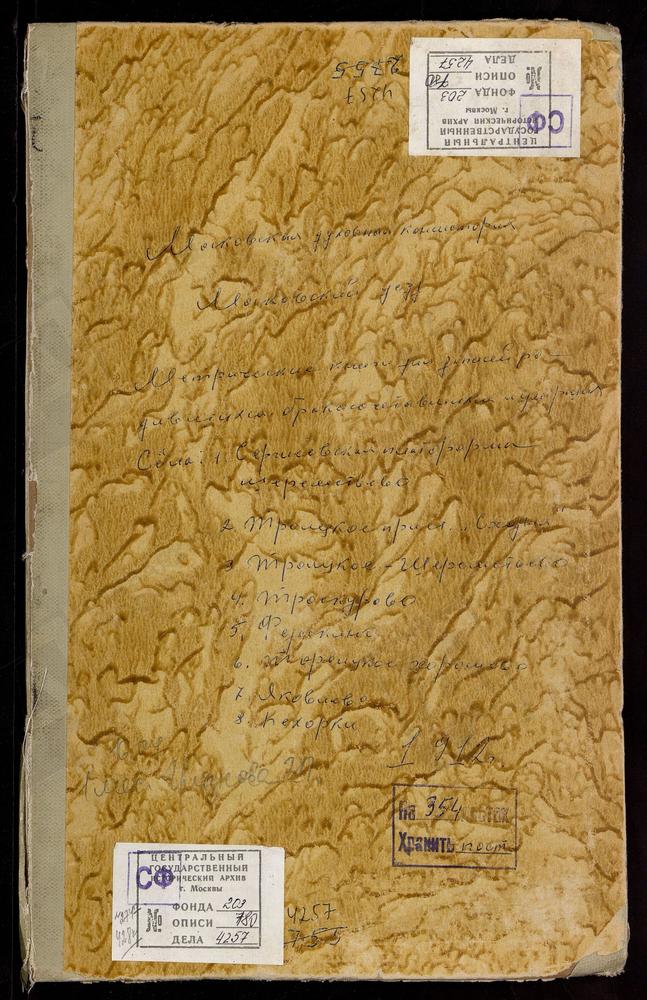 2755
4257
ЦЕНТРАЛЬНЫЙ
ГОСУДАРСТВЕННЫЙ
ИСТОРИЧЕСКИЙ АРХИВ
г. Москвы
СФ
№
ФОНДА 203
ОПИСИ 780
ДЕЛА 4257
Московская духовная консистория
Московский уезд
Метрические книги ро-
дившихся, бракосочетавшихся и умерших
Села: 1. Сергиевская платформа
Шереметьево
2. Троицкое "Сходня"
3. Троицкое-Шереметьево
4. Троекурово
5.
6. Троицкое
7. Яковлево
8. Хохорки
1912г.
На 354 листах
Хранить пост
ЦЕНТРАЛЬНЫЙ
ГОСУДАРСТВЕННЫЙ
ИСТОРИЧЕСКИЙ АРХИВ
г. Москвы
СФ
№
ФОНДА 203
ОПИСИ 780
ДЕЛА 4257
4257
755